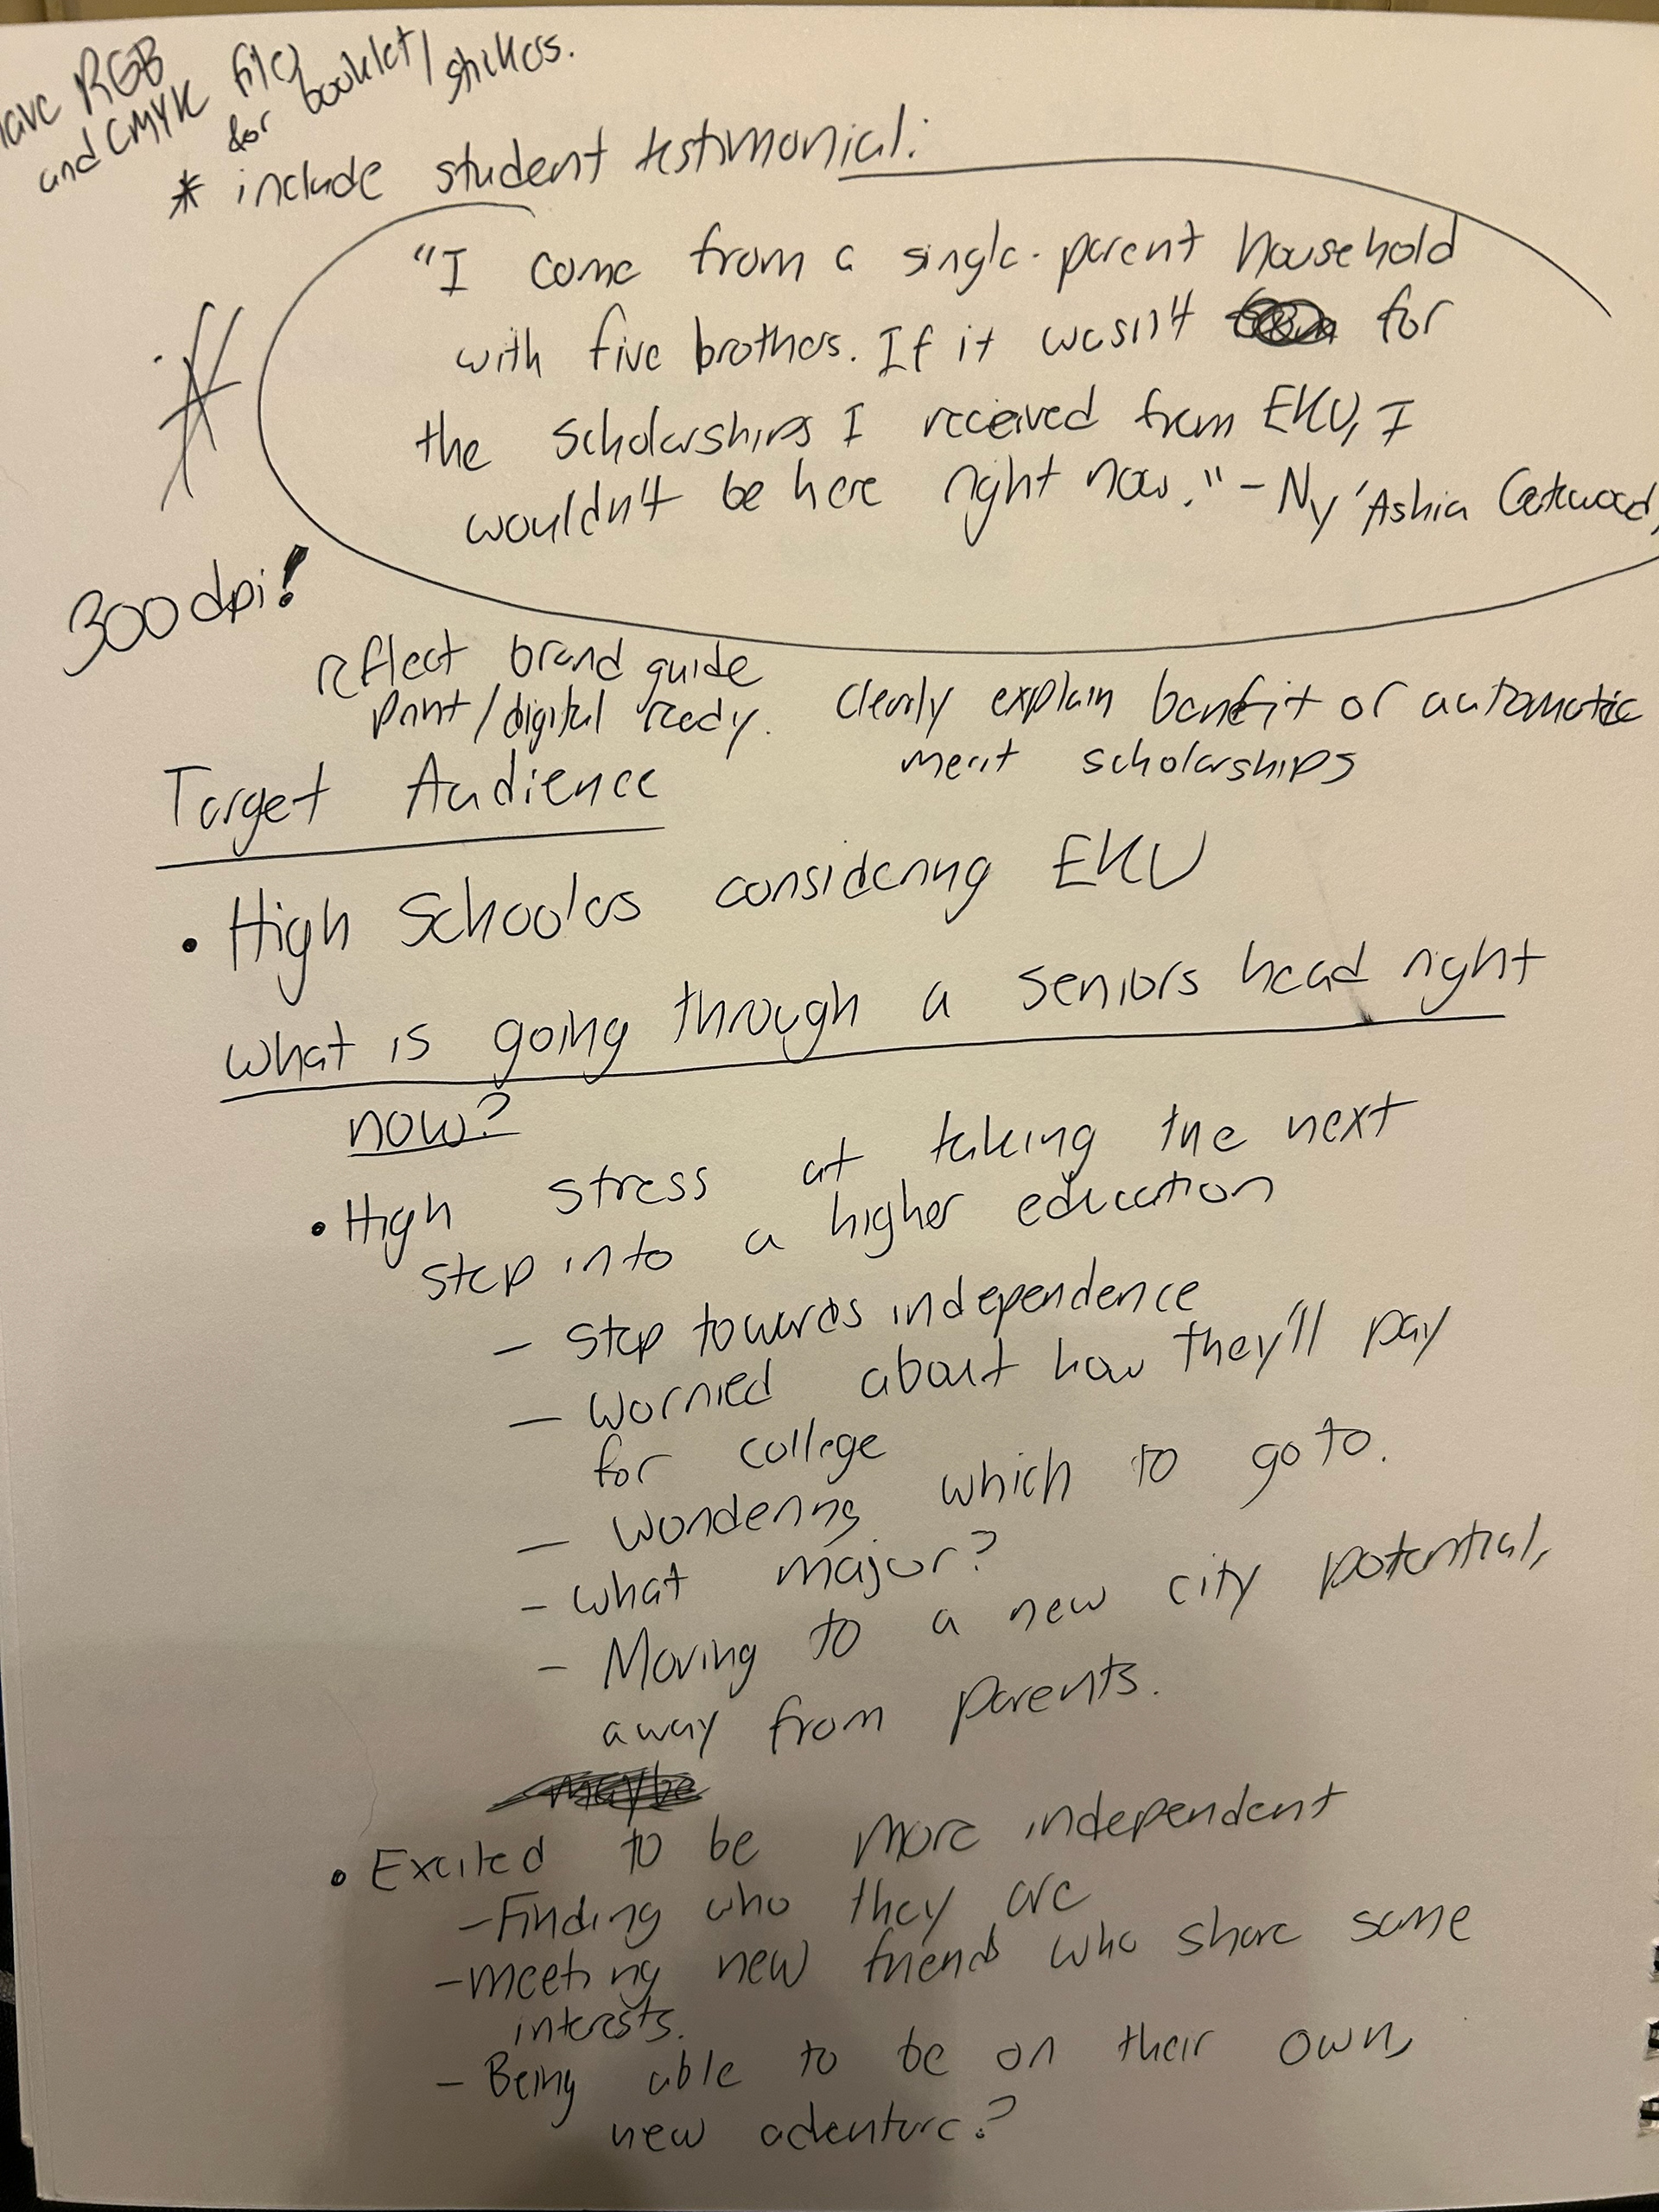 have RGB
and CMYK file
for booklet/stickers.
* include student testimonial:
"I come from a single-parent household
with five brothers. If it wasn't for
the scholarships I received from EKU, I
wouldn't be here right now." - Ny'Ashia
300dpi!
reflect brand guide
print/digital ready.
clearly explain benefit of automatic
merit scholarships
Target Audience
• High Schoolers considering EKU
What is going through a seniors head right
now?
• High stress at taking the next
step into a higher education
- Step towards independence
- Worried about how they'll pay
for college
- Wondering which to go to.
- what major?
- Moving to a new city potential,
away from parents.
maybe
• Excited to be more independent
- Finding who they are
- meeting new friends who share same
interests.
- Being able to be on their own,
new adenture?